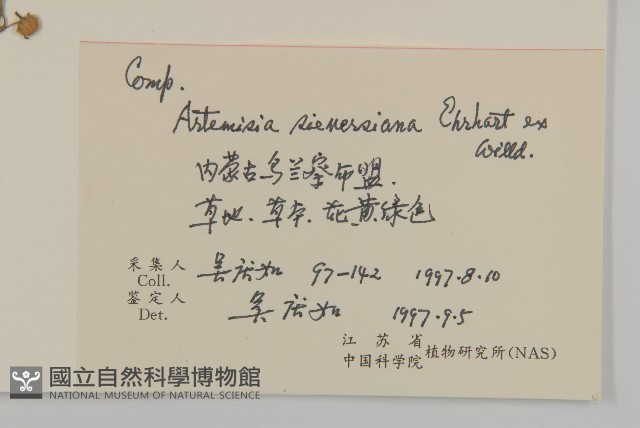 Comp.
Artemisia sieversiana Ehrhart ex
Willd.
内蒙古乌兰察布盟.
草地.草本.花黄绿色
采集人 吴庆如 97-142 1997.8.10
Coll.
鉴定人 吴庆如 1997.9.5
Det.
江苏省
中国科学院 植物研究所(NAS)
國立自然科學博物館
NATIONAL MUSEUM OF NATURAL SCIENCE